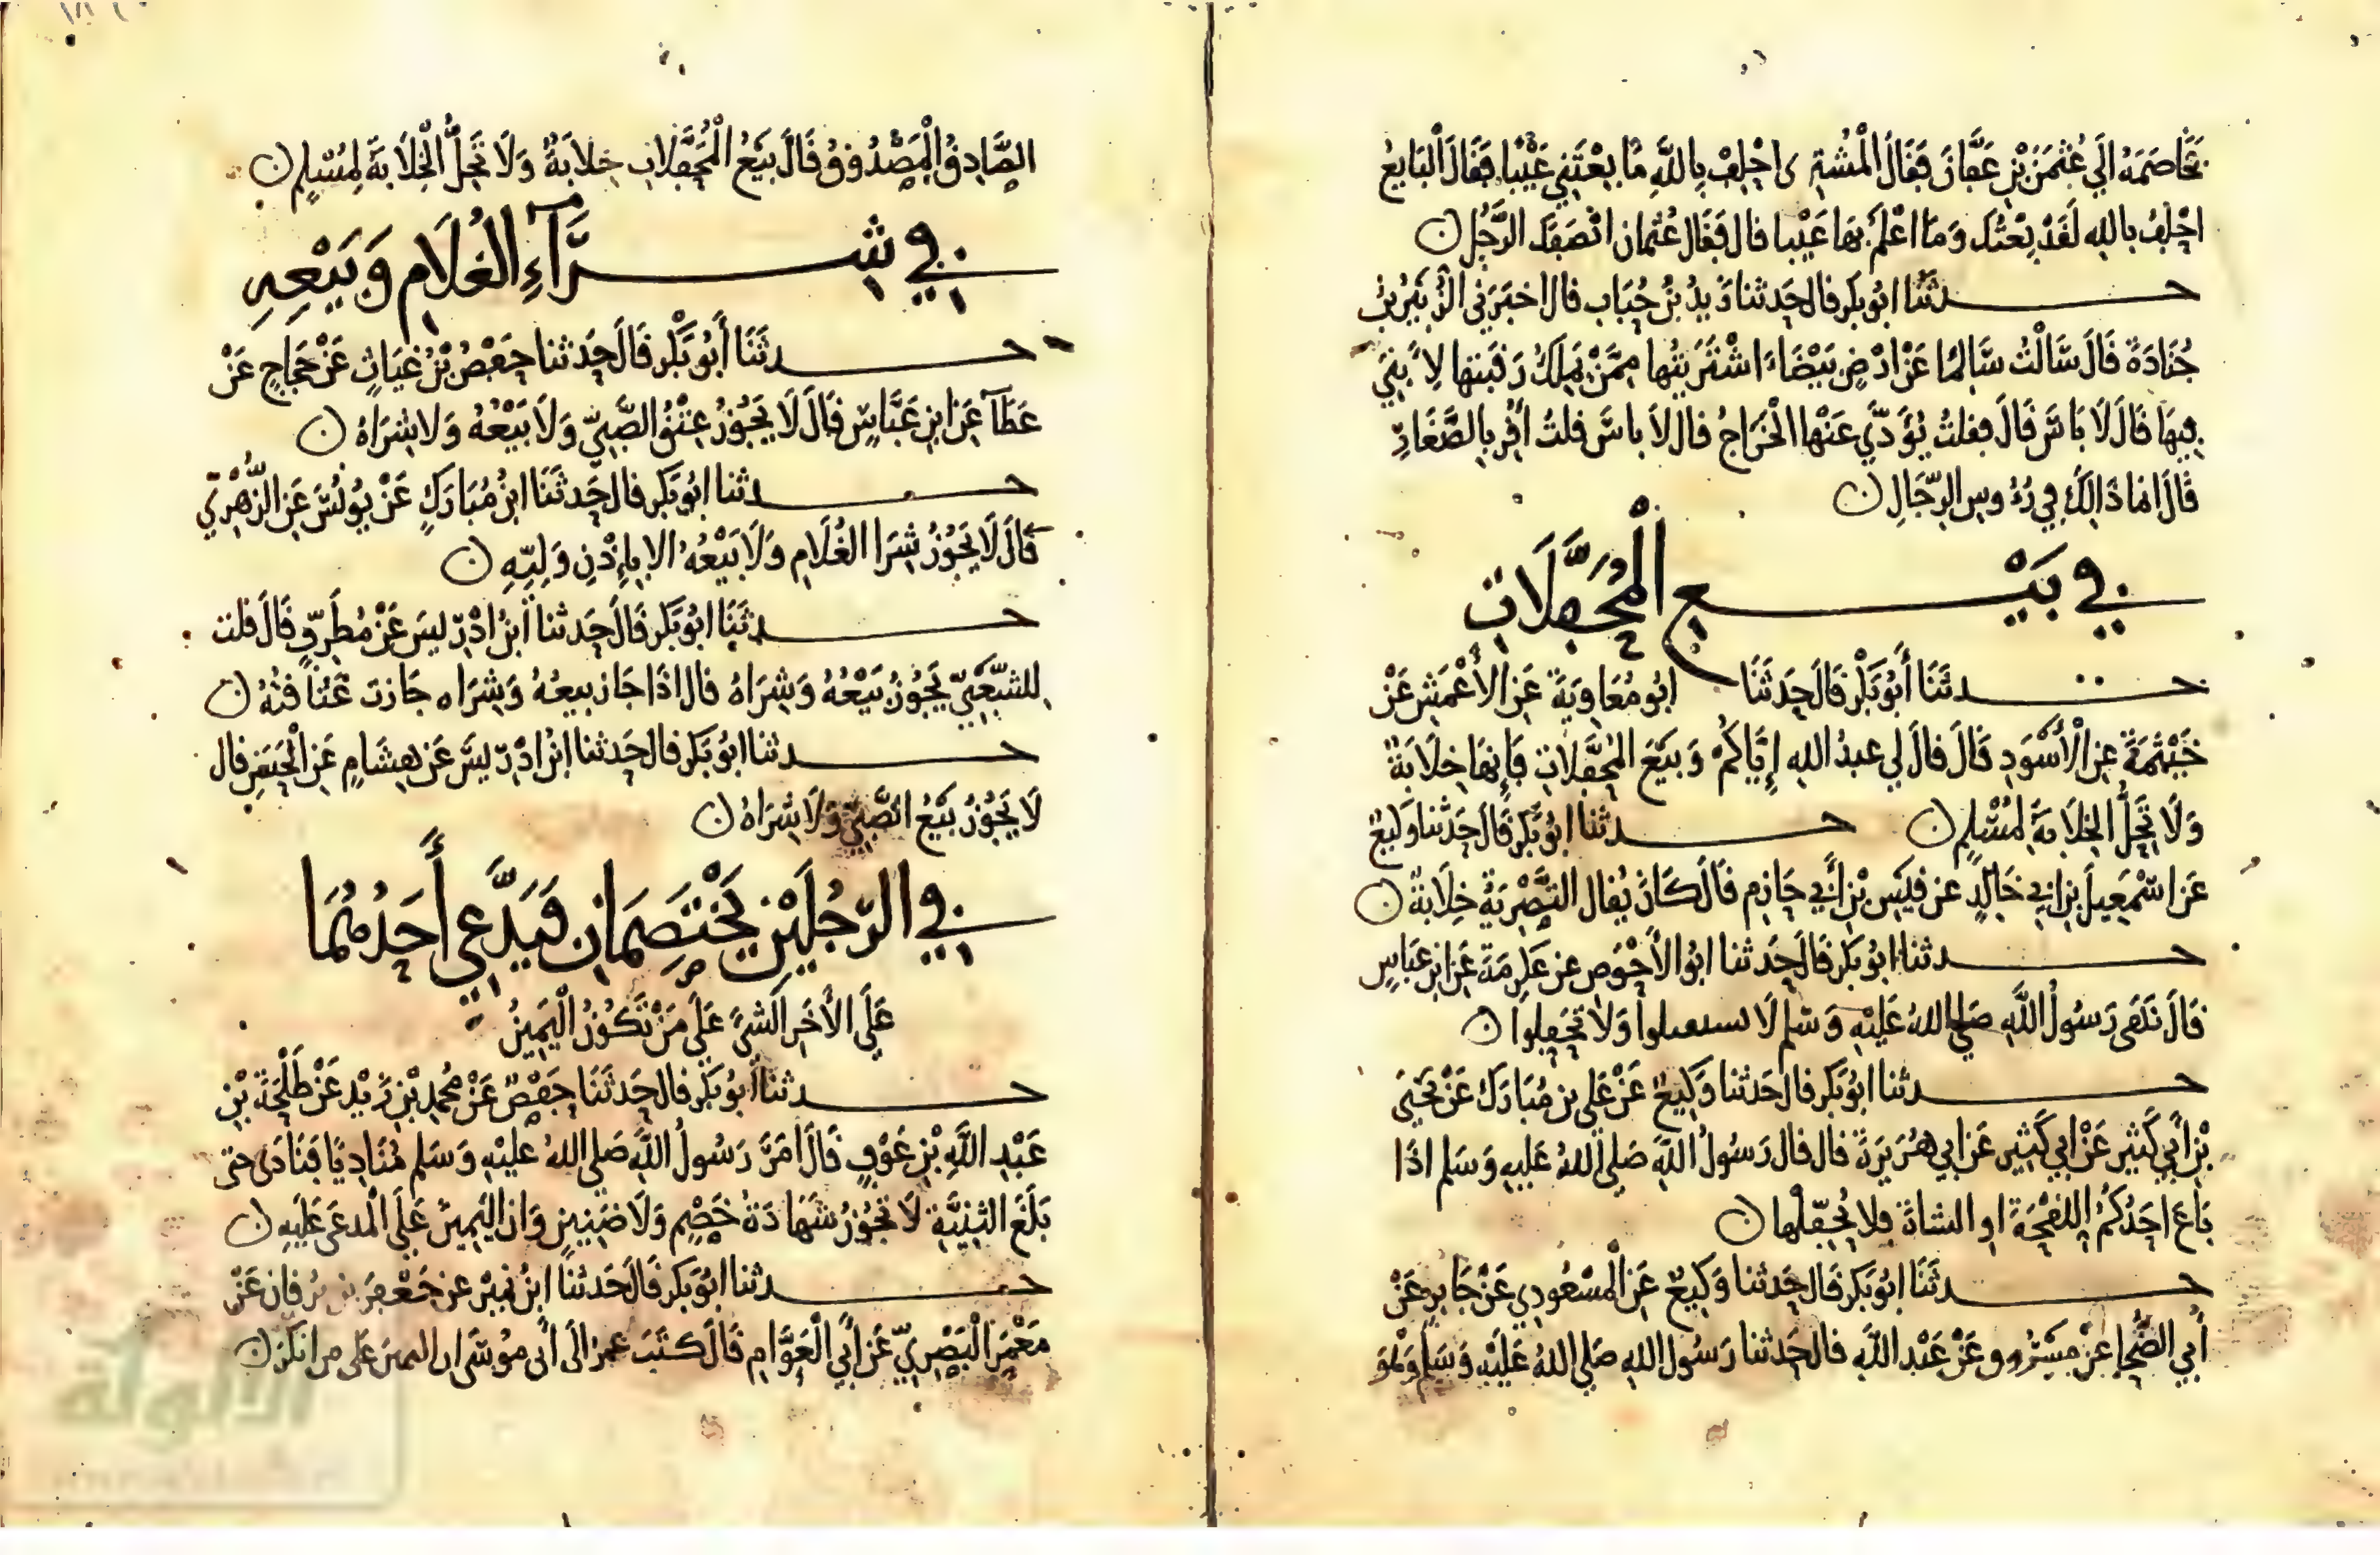 فخاصمه الى عثمن بن عفان فقال المشتري احلف بالله ما بعتني عيبا فقال البايع
احلف بالله لقد بعتك وما اعلم بها عيبا قال فقال عثمان انصفك الرجل
حدثنا ابو بكر قال حدثنا زيد بن حباب قال اخبرني الزبير بن
جنادة قال سالت سالما عن ارض بيضاء اشتريتها ممن يملك رقبتها لابني
فيها قال لا باس قال فقلت نؤدي عنها الخراج قال لا باس قلت أقر بالصغار
قال انما ذالك في رءوس الرجال
في بيع المحفلات
حدثنا أبو بكر قال حدثنا ابو معاوية عن الأعمش عن
خيثمة عن الأسود قال قال لي عبد الله إياكم وبيع المحفلات فإنها خلابة
ولا تحل الخلابة لمسلم حدثنا ابو بكر قال حدثنا وكيع
عن اسمعيل بن ابي خالد عن قيس بن أبي حازم قال كان يقال التصرية خلابة
حدثنا ابو بكر قال حدثنا ابو الأحوص عن عكرمة عن ابن عباس
قال نهى رسول الله صلى الله عليه وسلم لا تستقبلوا ولا تحفلوا
حدثنا ابو بكر قال حدثنا وكيع عن على بن مبارك عن يحيى
بن أبي كثير عن ابي كثير عن ابي هريرة قال قال رسول الله صلى الله عليه وسلم اذا
باع احدكم اللقحة او الشاة فلا يحفلها
حدثنا ابو بكر قال حدثنا وكيع عن المسعودي عن جابر عن
أبي الضحا عن مسروق عن عبد الله قال حدثنا رسول الله صلى الله عليه وسلم وهو
الصادق المصدوق قال بيع المحفلات خلابة ولا تحل الخلابة لمسلم
في شرآء الغلام وبيعه
حدثنا أبو بكر قال حدثنا حفص بن غياث عن حجاج عن
عطآ عن ابن عباس قال لا يجوز عتق الصبي ولا بيعه ولا شراه
حدثنا ابو بكر قال حدثنا ابن مبارك عن يونس عن الزهري
قال لا يجوز شرا الغلام ولا بيعه الا بإذن وليه
حدثنا ابو بكر قال حدثنا ابن ادريس عن مطرف قال قلت
للشعبي يجوز بيعه وشراه قال اذا جاز بيعه وشراه جازت عتاقته
حدثنا ابو بكر قال حدثنا ابن ادريس عن هشام عن الحسن قال
لا يجوز بيع الصبي ولا شراه
في الرجلين يختصمان فيدعي أحدهما
على الأخر الشئ على من تكون اليمين
حدثنا أبو بكر قال حدثنا حفص عن محمد بن زيد عن طلحة بن
عبد الله بن عوف قال امر رسول الله صلى الله عليه وسلم مناديا فنادى حتى
بلغ الثنية لا تجوز شهادة خصم ولا ضنين وان اليمين على المدعى عليه
حدثنا ابو بكر قال حدثنا ابن نمير عن جعفر بن برقان عن
معمر البصري عن أبي العوام قال كتب عمر الى أبي موسى ان اليمين على من انكر
الألوكة